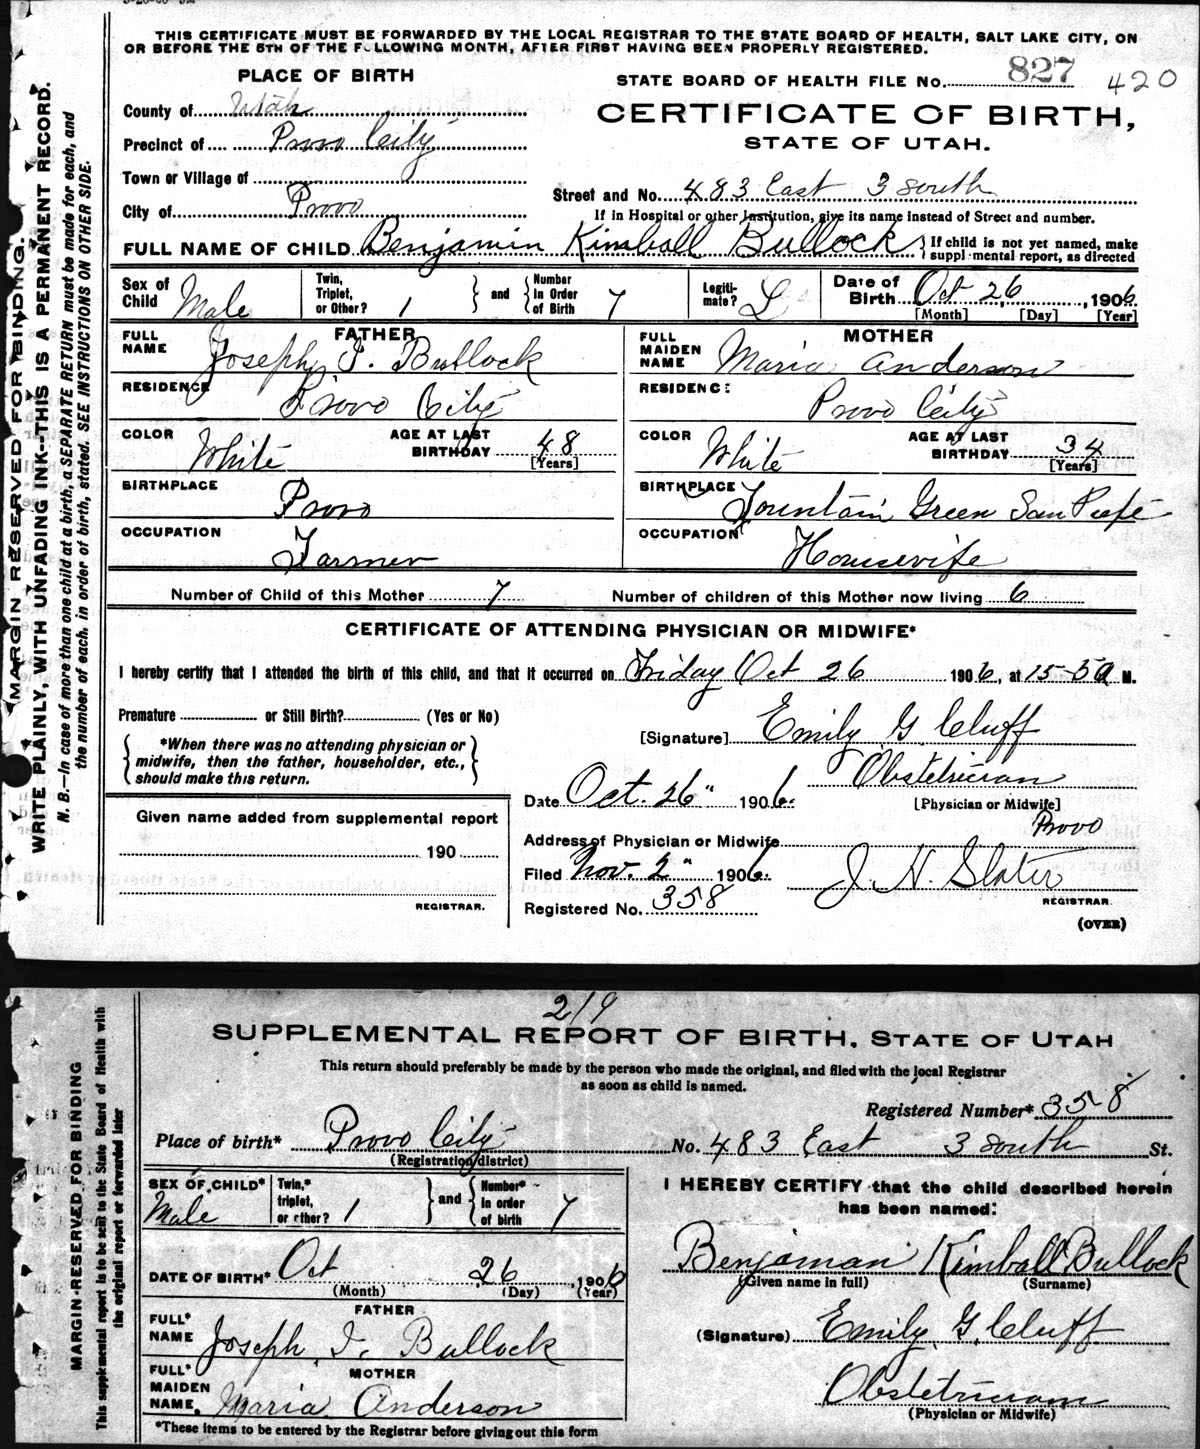 THIS CERTIFICATE MUST BE FORWARDED BY THE LOCAL REGISTRAR TO THE STATE BOARD OF HEALTH, SALT LAKE CITY, ON
OR BEFORE THE 5TH OF THE FOLLOWING MONTH, AFTER FIRST HAVING BEEN PROPERLY REGISTERED.
PLACE OF BIRTH
STATE BOARD OF HEALTH FILE No. 827 420
County of Utah
CERTIFICATE OF BIRTH,
Precinct of Provo City
STATE OF UTAH.
Town or Village of
Street and No. 483 East 3 South
City of Provo
If in Hospital or other Institution, give its name instead of Street and number.
FULL NAME OF CHILD Benjamin Kimball Bullock
If child is not yet named, make
supplemental report, as directed
Sex of Child Male
Twin, Triplet, or Other? 1
and
Number in Order of Birth 7
Legitimate? L
Date of Birth Oct 26, 1906
[Month] [Day] [Year]
FATHER
FULL NAME Joseph I. Bullock
RESIDENCE Provo City
COLOR White
AGE AT LAST BIRTHDAY 48
[Years]
BIRTHPLACE Provo
OCCUPATION Farmer
MOTHER
FULL MAIDEN NAME Maria Anderson
RESIDENCE Provo City
COLOR White
AGE AT LAST BIRTHDAY 34
[Years]
BIRTHPLACE Fountain Green San Pete
OCCUPATION Housewife
Number of Child of this Mother 7
Number of children of this Mother now living 6
CERTIFICATE OF ATTENDING PHYSICIAN OR MIDWIFE*
I hereby certify that I attended the birth of this child, and that it occurred on Friday Oct 26 1906, at M.
Premature or Still Birth? (Yes or No)
*When there was no attending physician or
midwife, then the father, householder, etc.,
should make this return.
[Signature] Emily G. Cluff
Obstetrician
[Physician or Midwife]
Date Oct. 26" 1906.
Address of Physician or Midwife Provo
Filed Nov. 2" 1906.
J. H. Slater
REGISTRAR.
Registered No. 358
(OVER)
Given name added from supplemental report
190
REGISTRAR.
MARGIN RESERVED FOR BINDING.
WRITE PLAINLY, WITH UNFADING INK--THIS IS A PERMANENT RECORD.
N. B.—In case of more than one child at a birth, a SEPARATE RETURN must be made for each, and
the number of each, in order of birth, stated. SEE INSTRUCTIONS ON OTHER SIDE.
219
SUPPLEMENTAL REPORT OF BIRTH, STATE OF UTAH
This return should preferably be made by the person who made the original, and filed with the local Registrar
as soon as child is named.
Registered Number* 358
Place of birth* Provo City No. 483 East 3 South St.
(Registration district)
SEX OF CHILD* Male
Twin,* triplet, or other? 1
and
Number* in order of birth 7
DATE OF BIRTH* Oct 26, 1906
(Month) (Day) (Year)
FATHER
FULL* NAME Joseph I. Bullock
MOTHER
FULL* MAIDEN NAME, Maria Anderson
*These items to be entered by the Registrar before giving out this form
I HEREBY CERTIFY that the child described herein
has been named:
Benjaman Kimball Bullock
(Given name in full) (Surname)
(Signature) Emily G. Cluff
Obstetrician
(Physician or Midwife)
MARGIN-RESERVED FOR BINDING
This supplemental report is to be sent to the State Board of Health with
the original report or forwarded later